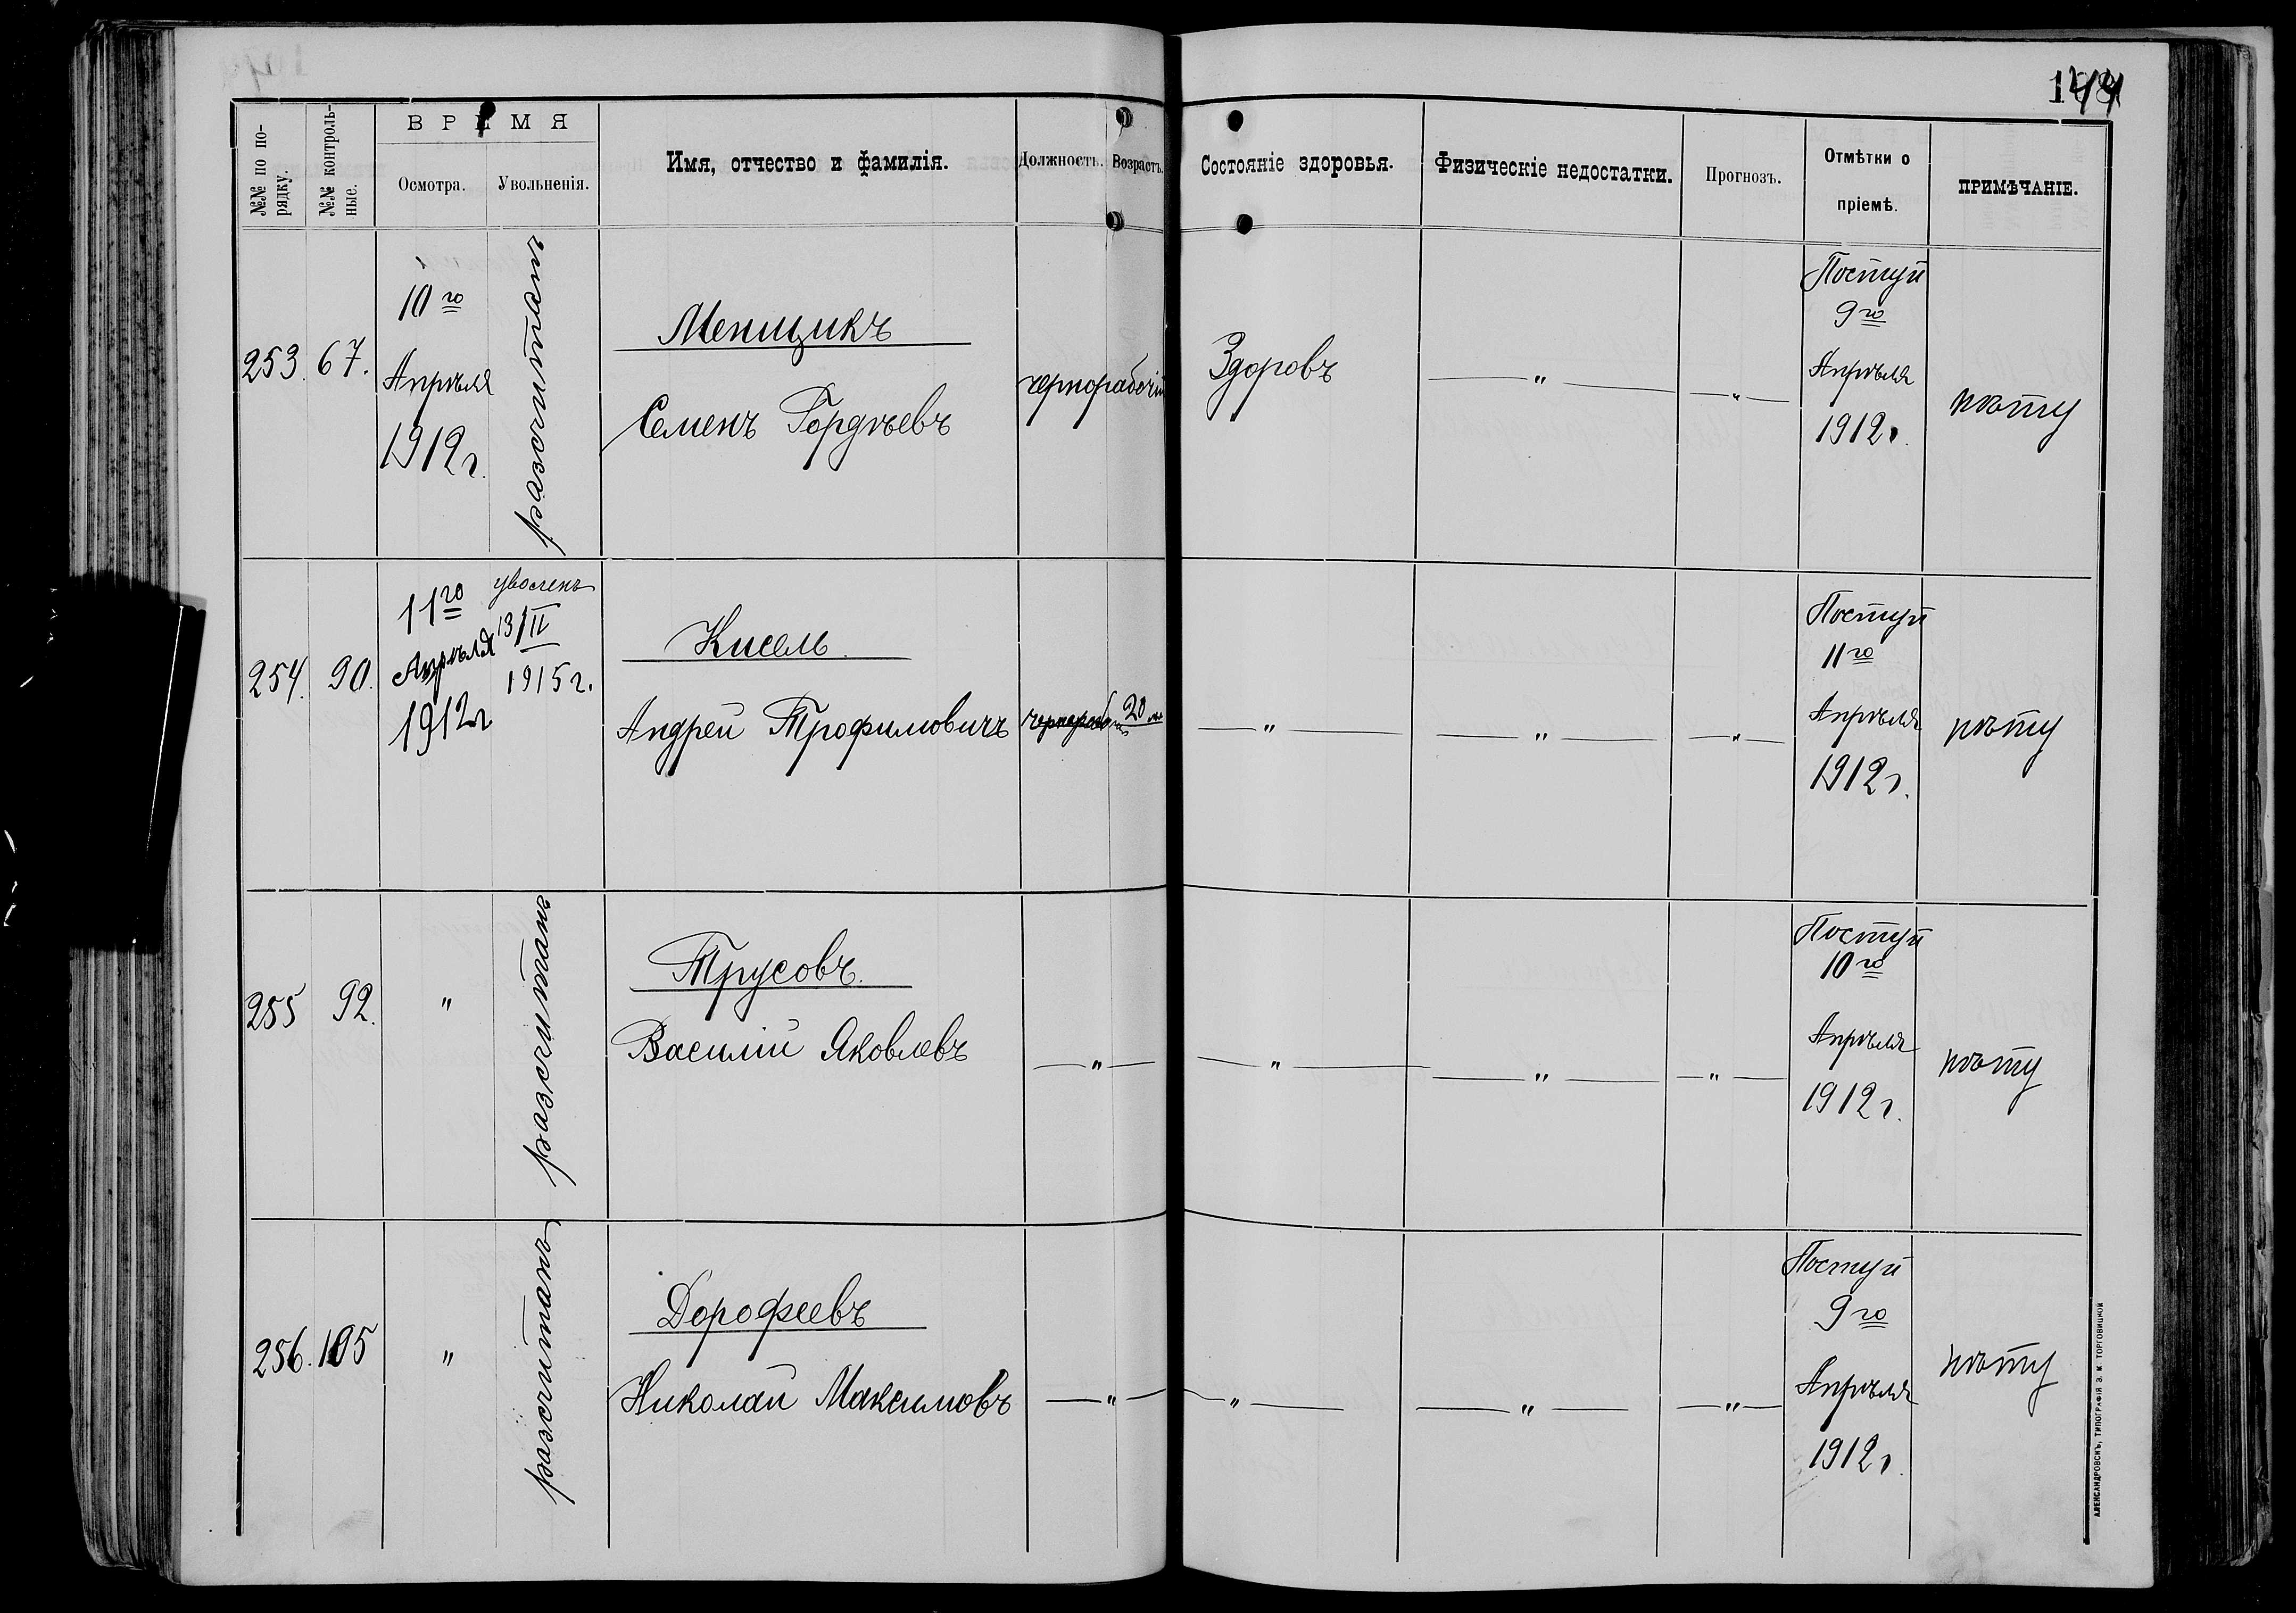 №№ по по-
рядку.
№№ контроль-
ные.
ВРЕМЯ
Осмотра.
Увольненія.
Имя, отчество и фамилія.
Должность.
Возрастъ.
Состояніе здоровья.
Физическіе недостатки.
Прогнозъ.
Отмѣтки о
пріемѣ.
ПРИМѢЧАНІЕ.
253.
67.
10го
Апрѣля
1912г.
разсчитанъ
Менщикъ
Семенъ Гордѣевъ
чернорабочій
Здоровъ
— " —
— " —
Поступ
9го
Апрѣля
1912г.
нѣту
254.
90.
11го
Апрѣля
1912г
уволенъ
13/II
1915г.
Кисель.
Андрей Трофимовичъ
20
— " —
— " —
— " —
Поступ
11го
Апрѣля
1912г.
нѣту
255
92.
"
разсчитанъ
Трусовъ.
Василій Яковлевъ
— " —
— " —
— " —
— " —
Поступ
10го
Апрѣля
1912г.
нѣту
256.
105
"
разсчитанъ
Дорофеевъ
Николай Максимовъ
— " —
— " —
— " —
— " —
Поступ
9го
Апрѣля
1912г.
нѣту
АЛЕКСАНДРОВСКЪ, ТИПОГРАФІЯ Э. М. ТОРГОВИЦКОЙ